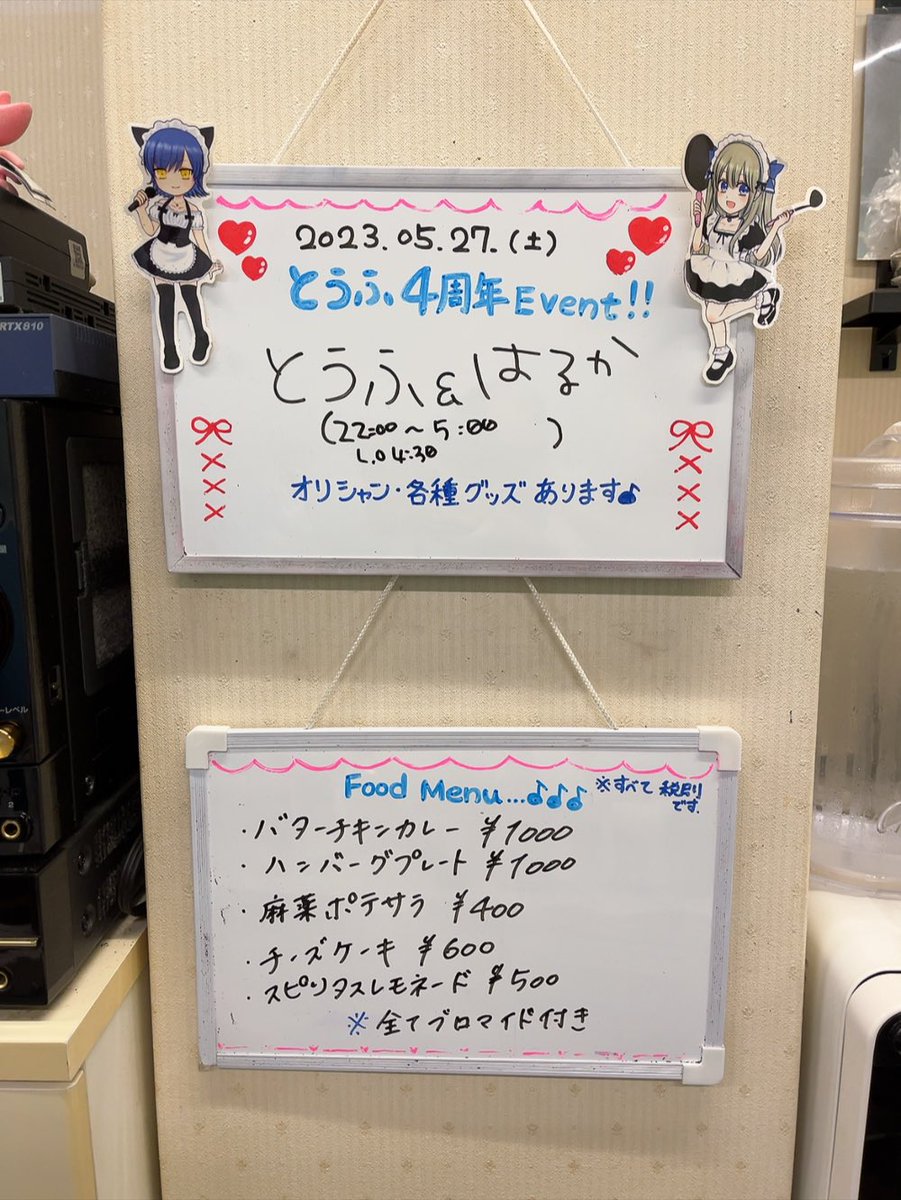 2023.05.27.(土)
とうふ4周年Event!!
とうふ&はるか
(22:00～5:00 )
L.O 4:30
オリシャン・各種グッズあります♪
RTX810
ーレベル
2
Food Menu...♪♪♪
※すべて税別
です.
・バターチキンカレー ¥1000
・ハンバーグプレート ¥1000
・麻薬ポテサラ ¥400
・チーズケーキ ¥600
・スピリタスレモネード ¥500
※全てブロマイド付き